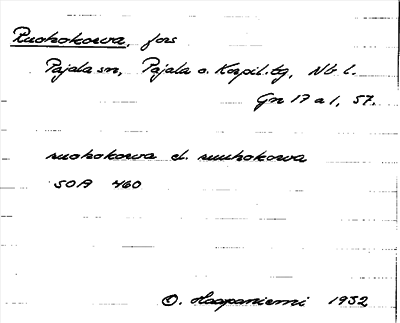 Ruohokorva, fors
Pajala sn, Pajala o. Korpil. tg, Nb l.
Gn 17 a 1, 57.
ruohokorva el. ruuhokorva
SOA 460
O. Haapaniemi 1932